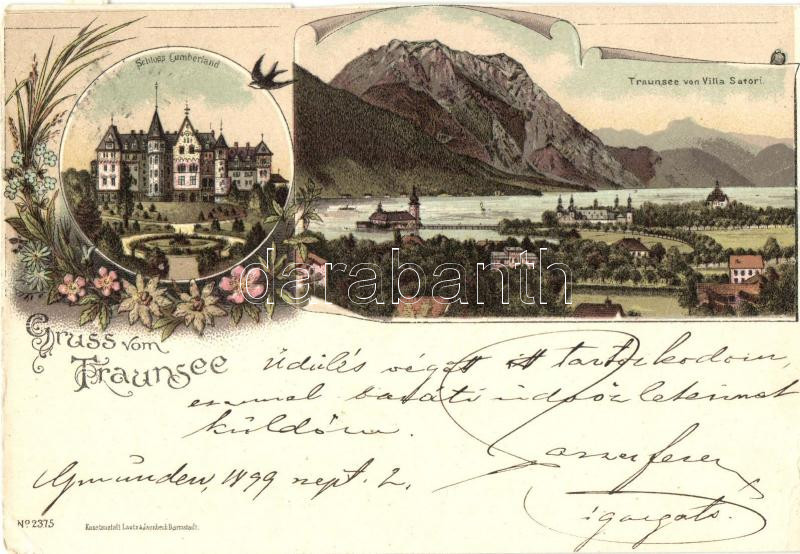 Schloss Cumberland
Traunsee von Villa Satori.
darabanth
Gruss vom
Traunsee
Üdülés végett itt tartózkodom,
ezennel baráti üdvözleteimet
küldöm.
Gmunden, 1899 sept. 2.
igazgató.
No 2375
Kunstanstalt Lautz & Isenbeck Darmstadt.